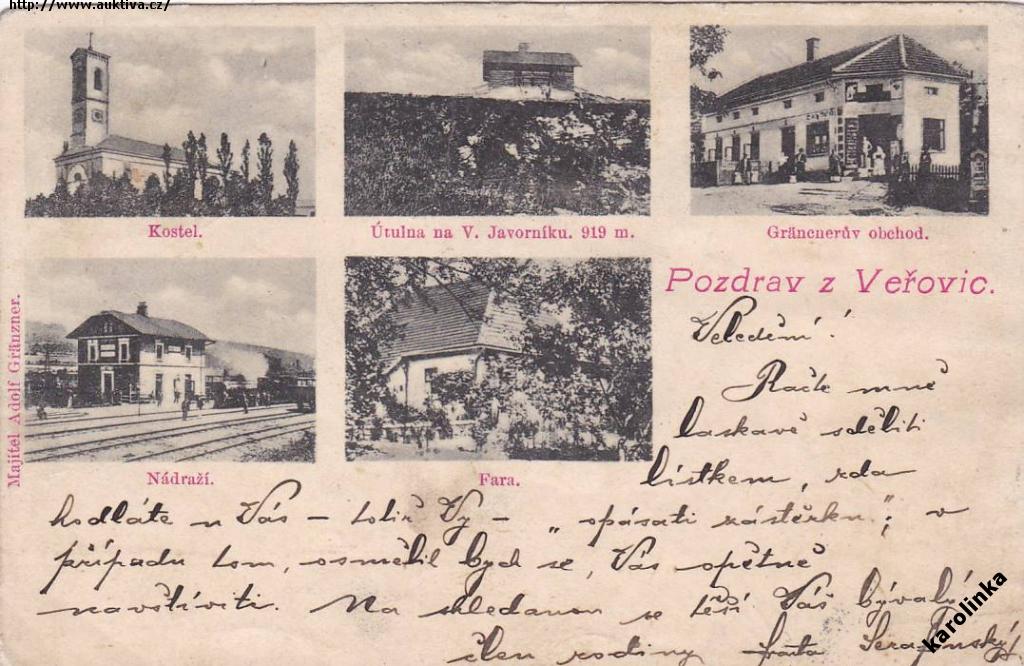 http://www.auktiva.cz/
Kostel.
Útulna na V. Javorníku. 919 m.
Gräncnerův obchod.
Nádraží.
Fara.
Majitel Adolf Gränzner.
Pozdrav z Veřovic.
Veledění!
Račte mně
laskavě sděliti
lístkem, zda
hodláte u Vás – totiž Vy – „opásati zástěrku"; v
případu tom, osmělil bych se, Vás opětně
navštíviti. Na shledanou se těší Váš bývalý
člen rodiny
karolinka